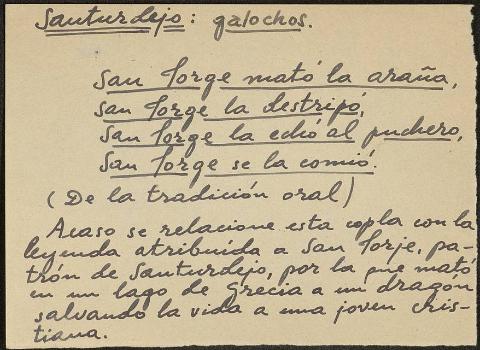 Santurdejo: galochos.
San Jorge mató la araña,
San Jorge la destripó,
San Jorge la echó al puchero,
San Jorge se la comió.
(De la tradición oral)
Acaso se relacione esta copla con la
leyenda atribuída a San Jorje, pa-
trón de Santurdejo, por la que mató
en un lago de Grecia a un dragón
salvando la vida a una joven cris-
tiana.